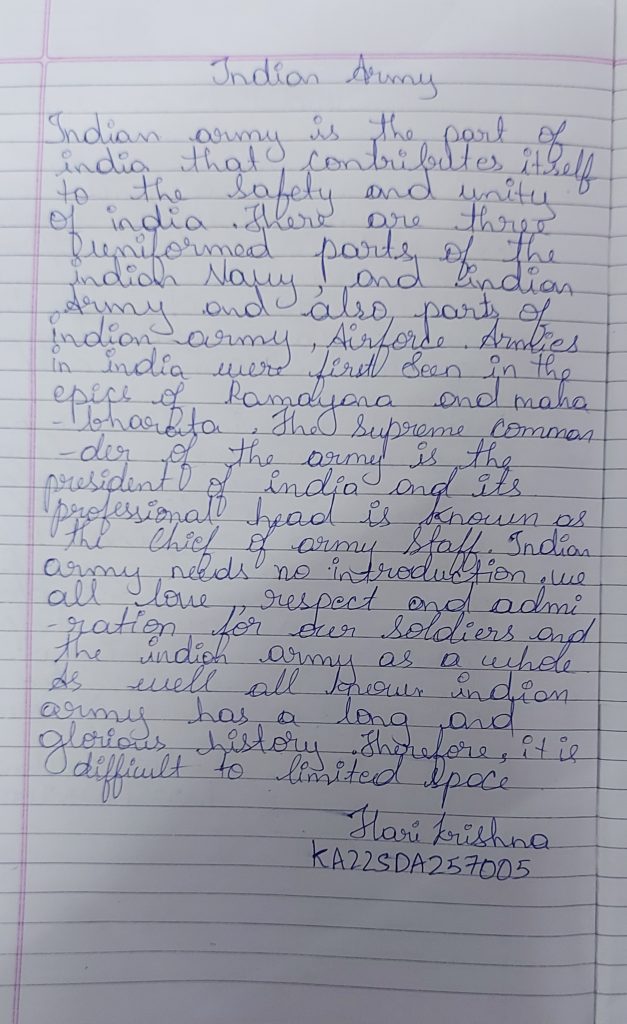 Indian Army
Indian army is the part of
india that contributes itself
to the safety and unity
of india . There are three
uniformed parts of the
indian Navy, and indian
Army and also parts of
indian army, Airforce. Armies
in india were first seen in the
epics of Ramayana and maha
-bharata . The Supreme comman
-der of the army is the
president of india and its
professional head is known as
the Chief of army Staff. Indian
army needs no introduction . we
all love, respect and admi
-ration for our soldiers and
the indian army as a whole
As well all known indian
army has a long and
glorious history. Therefore, it is
difficult to limited space
Hari Krishna
KA22SDA257005